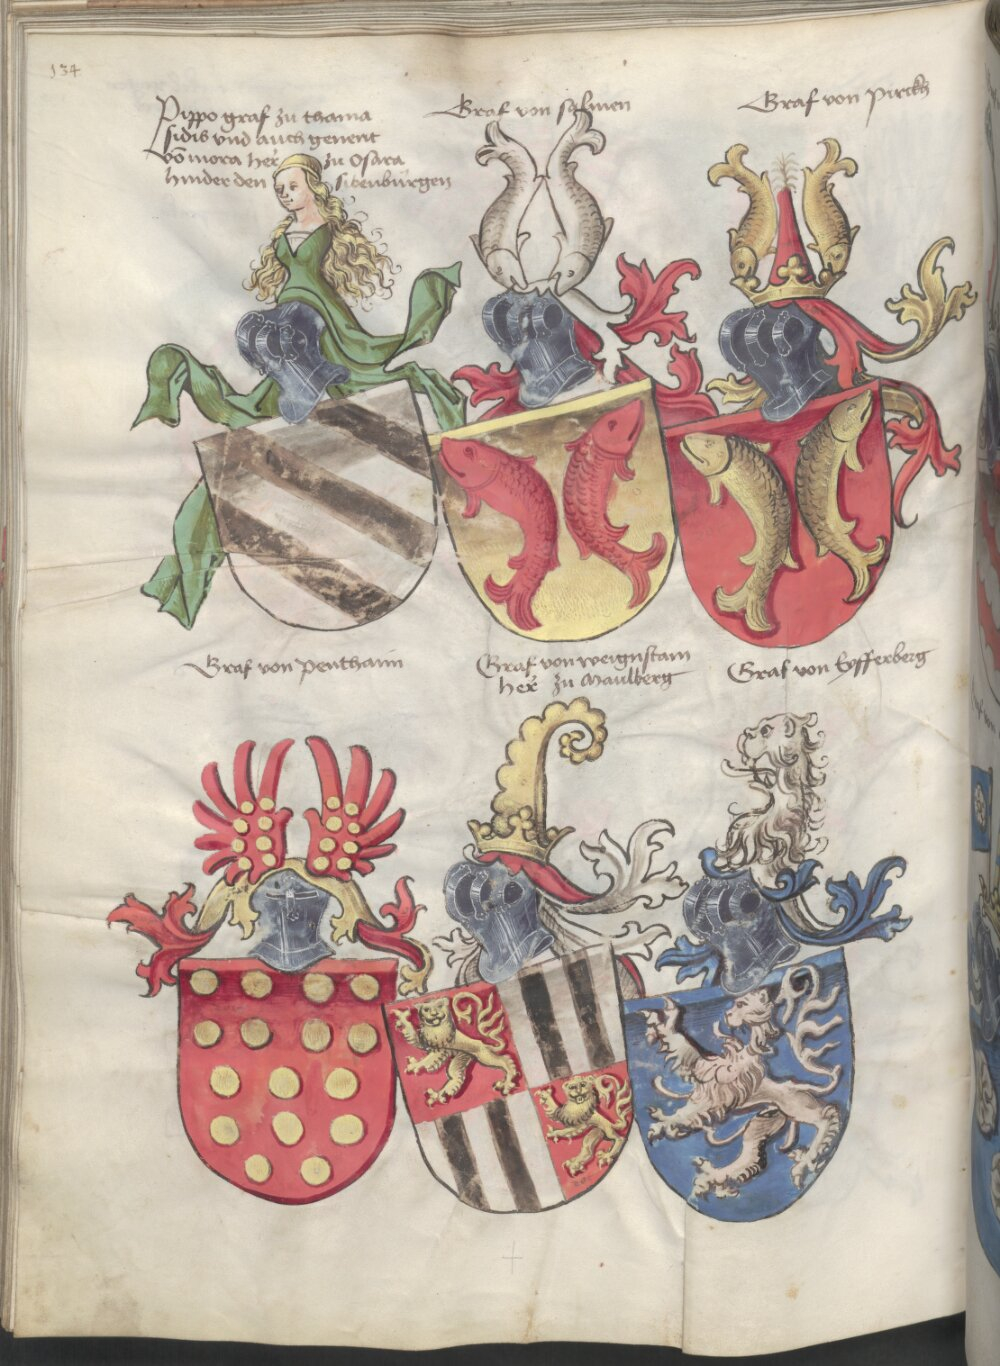 134
Pippo graf zu thama
sidis vnd auch genent
vo mora her zu Osara
hinder den sibenbürgen
Graf von salmen
Graf von Pirckh
Graf von Penthaim
Graf von weignstam
her zu Maulberg
Graf von Eysserberg